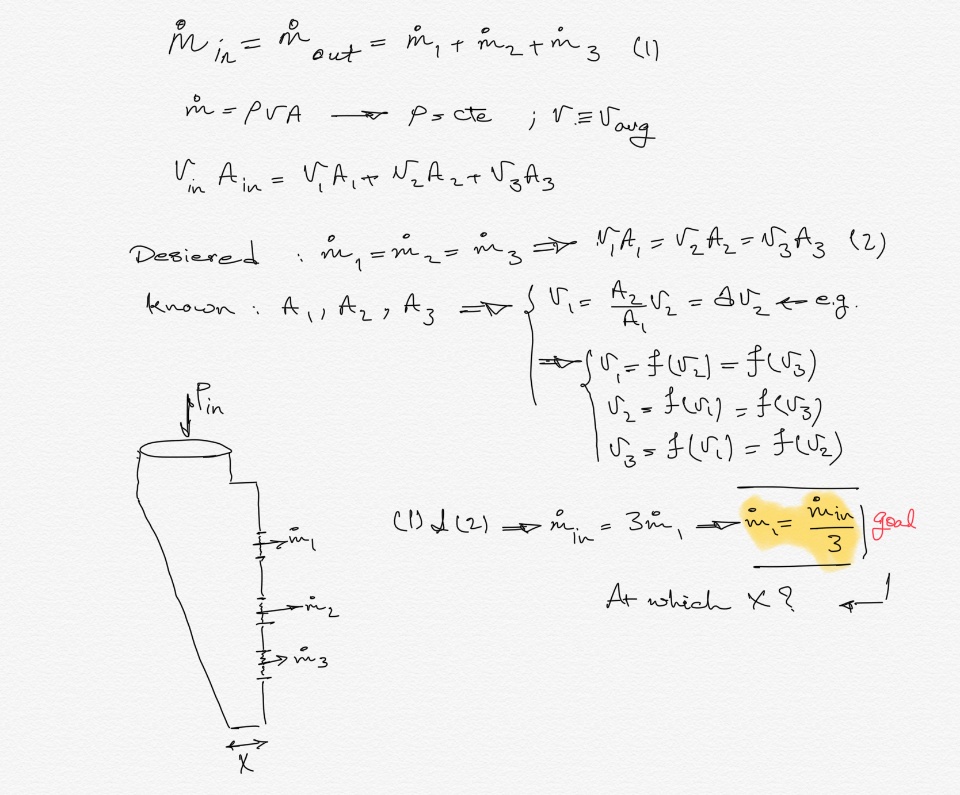 ṁ_in = ṁ_out = ṁ₁ + ṁ₂ + ṁ₃ (1)
ṁ = ρVA → ρ = cte ; V ≡ V_avg
V_in A_in = V₁A₁ + V₂A₂ + V₃A₃
Desiered : ṁ₁ = ṁ₂ = ṁ₃ ⇒ V₁A₁ = V₂A₂ = V₃A₃ (2)
known : A₁, A₂, A₃ ⇒ { V₁ = A₂/A₁ V₂ = ΔV₂ ← e.g.
⇒ { V₁ = f(V₂) = f(V₃)
V₂ = f(V₁) = f(V₃)
V₃ = f(V₁) = f(V₂)
P_in
(1) & (2) → ṁ_in = 3ṁ₁ → ṁ₁ = ṁ_in/3 goal
At which X? ←
ṁ₁
ṁ₂
ṁ₃
X